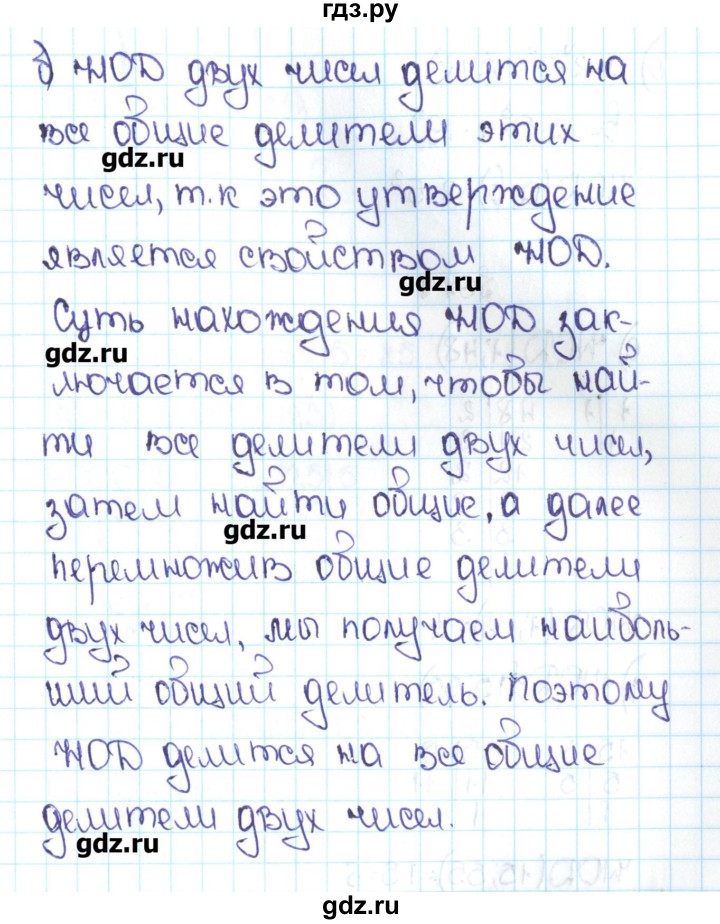 гдз.ру
д) НОД двух чисел делится на
все общие делители этих
gdz.ru
чисел, т.к это утверждение
является свойством НОД.
gdz.ru
Суть нахождения НОД зак-
gdz.ru
лючается в том, чтобы най-
ти все делители двух чисел,
затем найти общие, а далее
gdz.ru
перемножив общие делители
двух чисел, мы получаем наиболь-
ший общий делитель. Поэтому
НОД делится на все общие
делители двух чисел.
gdz.ru
гдз.ру